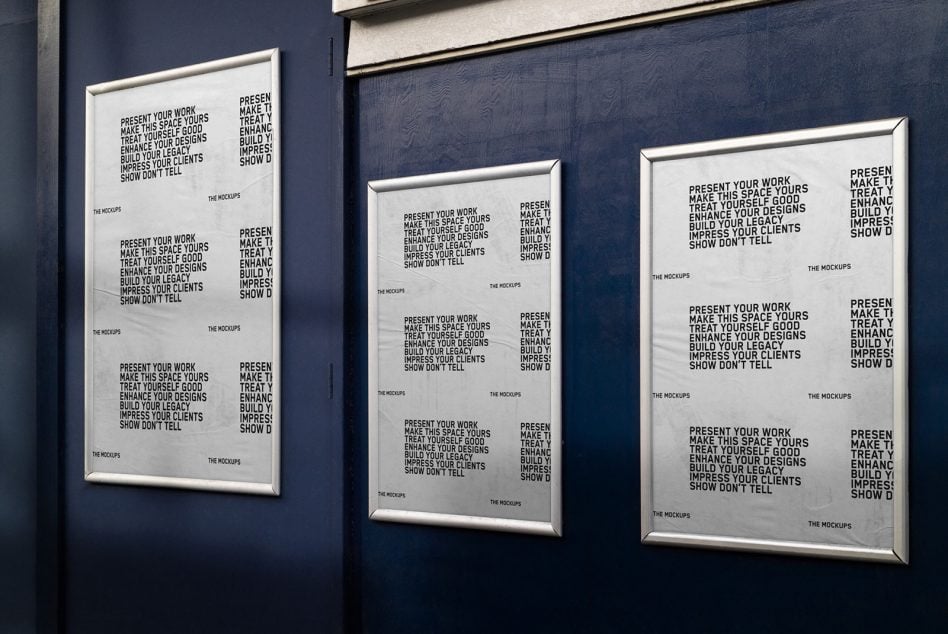 PRESENT YOUR WORK
MAKE THIS SPACE YOURS
TREAT YOURSELF GOOD
ENHANCE YOUR DESIGNS
BUILD YOUR LEGACY
IMPRESS YOUR CLIENTS
SHOW DON'T TELL
PRESEN
MAKE TH
TREAT Y
ENHANC
BUILD Y
IMPRESS
SHOW D
THE MOCKUPS
THE MOCKUPS
PRESENT YOUR WORK
MAKE THIS SPACE YOURS
TREAT YOURSELF GOOD
ENHANCE YOUR DESIGNS
BUILD YOUR LEGACY
IMPRESS YOUR CLIENTS
SHOW DON'T TELL
PRESEN
MAKE TH
TREAT Y
ENHANC
BUILD Y
IMPRESS
SHOW D
THE MOCKUPS
THE MOCKUPS
PRESENT YOUR WORK
MAKE THIS SPACE YOURS
TREAT YOURSELF GOOD
ENHANCE YOUR DESIGNS
BUILD YOUR LEGACY
IMPRESS YOUR CLIENTS
SHOW DON'T TELL
PRESEN
MAKE TH
TREAT Y
ENHANC
BUILD Y
IMPRESS
SHOW D
THE MOCKUPS
THE MOCKUPS
PRESENT YOUR WORK
MAKE THIS SPACE YOURS
TREAT YOURSELF GOOD
ENHANCE YOUR DESIGNS
BUILD YOUR LEGACY
IMPRESS YOUR CLIENTS
SHOW DON'T TELL
PRESEN
MAKE TH
TREAT Y
ENHANC
BUILD Y
IMPRESS
SHOW D
THE MOCKUPS
THE MOCKUPS
PRESENT YOUR WORK
MAKE THIS SPACE YOURS
TREAT YOURSELF GOOD
ENHANCE YOUR DESIGNS
BUILD YOUR LEGACY
IMPRESS YOUR CLIENTS
SHOW DON'T TELL
PRESEN
MAKE TH
TREAT Y
ENHANC
BUILD Y
IMPRESS
SHOW D
THE MOCKUPS
THE MOCKUPS
PRESENT YOUR WORK
MAKE THIS SPACE YOURS
TREAT YOURSELF GOOD
ENHANCE YOUR DESIGNS
BUILD YOUR LEGACY
IMPRESS YOUR CLIENTS
SHOW DON'T TELL
PRESEN
MAKE TH
TREAT Y
ENHANC
BUILD Y
IMPRESS
SHOW D
THE MOCKUPS
THE MOCKUPS
PRESENT YOUR WORK
MAKE THIS SPACE YOURS
TREAT YOURSELF GOOD
ENHANCE YOUR DESIGNS
BUILD YOUR LEGACY
IMPRESS YOUR CLIENTS
SHOW DON'T TELL
PRESEN
MAKE TH
TREAT Y
ENHANC
BUILD Y
IMPRESS
SHOW D
THE MOCKUPS
THE MOCKUPS
PRESENT YOUR WORK
MAKE THIS SPACE YOURS
TREAT YOURSELF GOOD
ENHANCE YOUR DESIGNS
BUILD YOUR LEGACY
IMPRESS YOUR CLIENTS
SHOW DON'T TELL
PRESEN
MAKE TH
TREAT Y
ENHANC
BUILD Y
IMPRESS
SHOW D
THE MOCKUPS
THE MOCKUPS
PRESENT YOUR WORK
MAKE THIS SPACE YOURS
TREAT YOURSELF GOOD
ENHANCE YOUR DESIGNS
BUILD YOUR LEGACY
IMPRESS YOUR CLIENTS
SHOW DON'T TELL
PRESEN
MAKE TH
TREAT Y
ENHANC
BUILD Y
IMPRESS
SHOW D
THE MOCKUPS
THE MOCKUPS